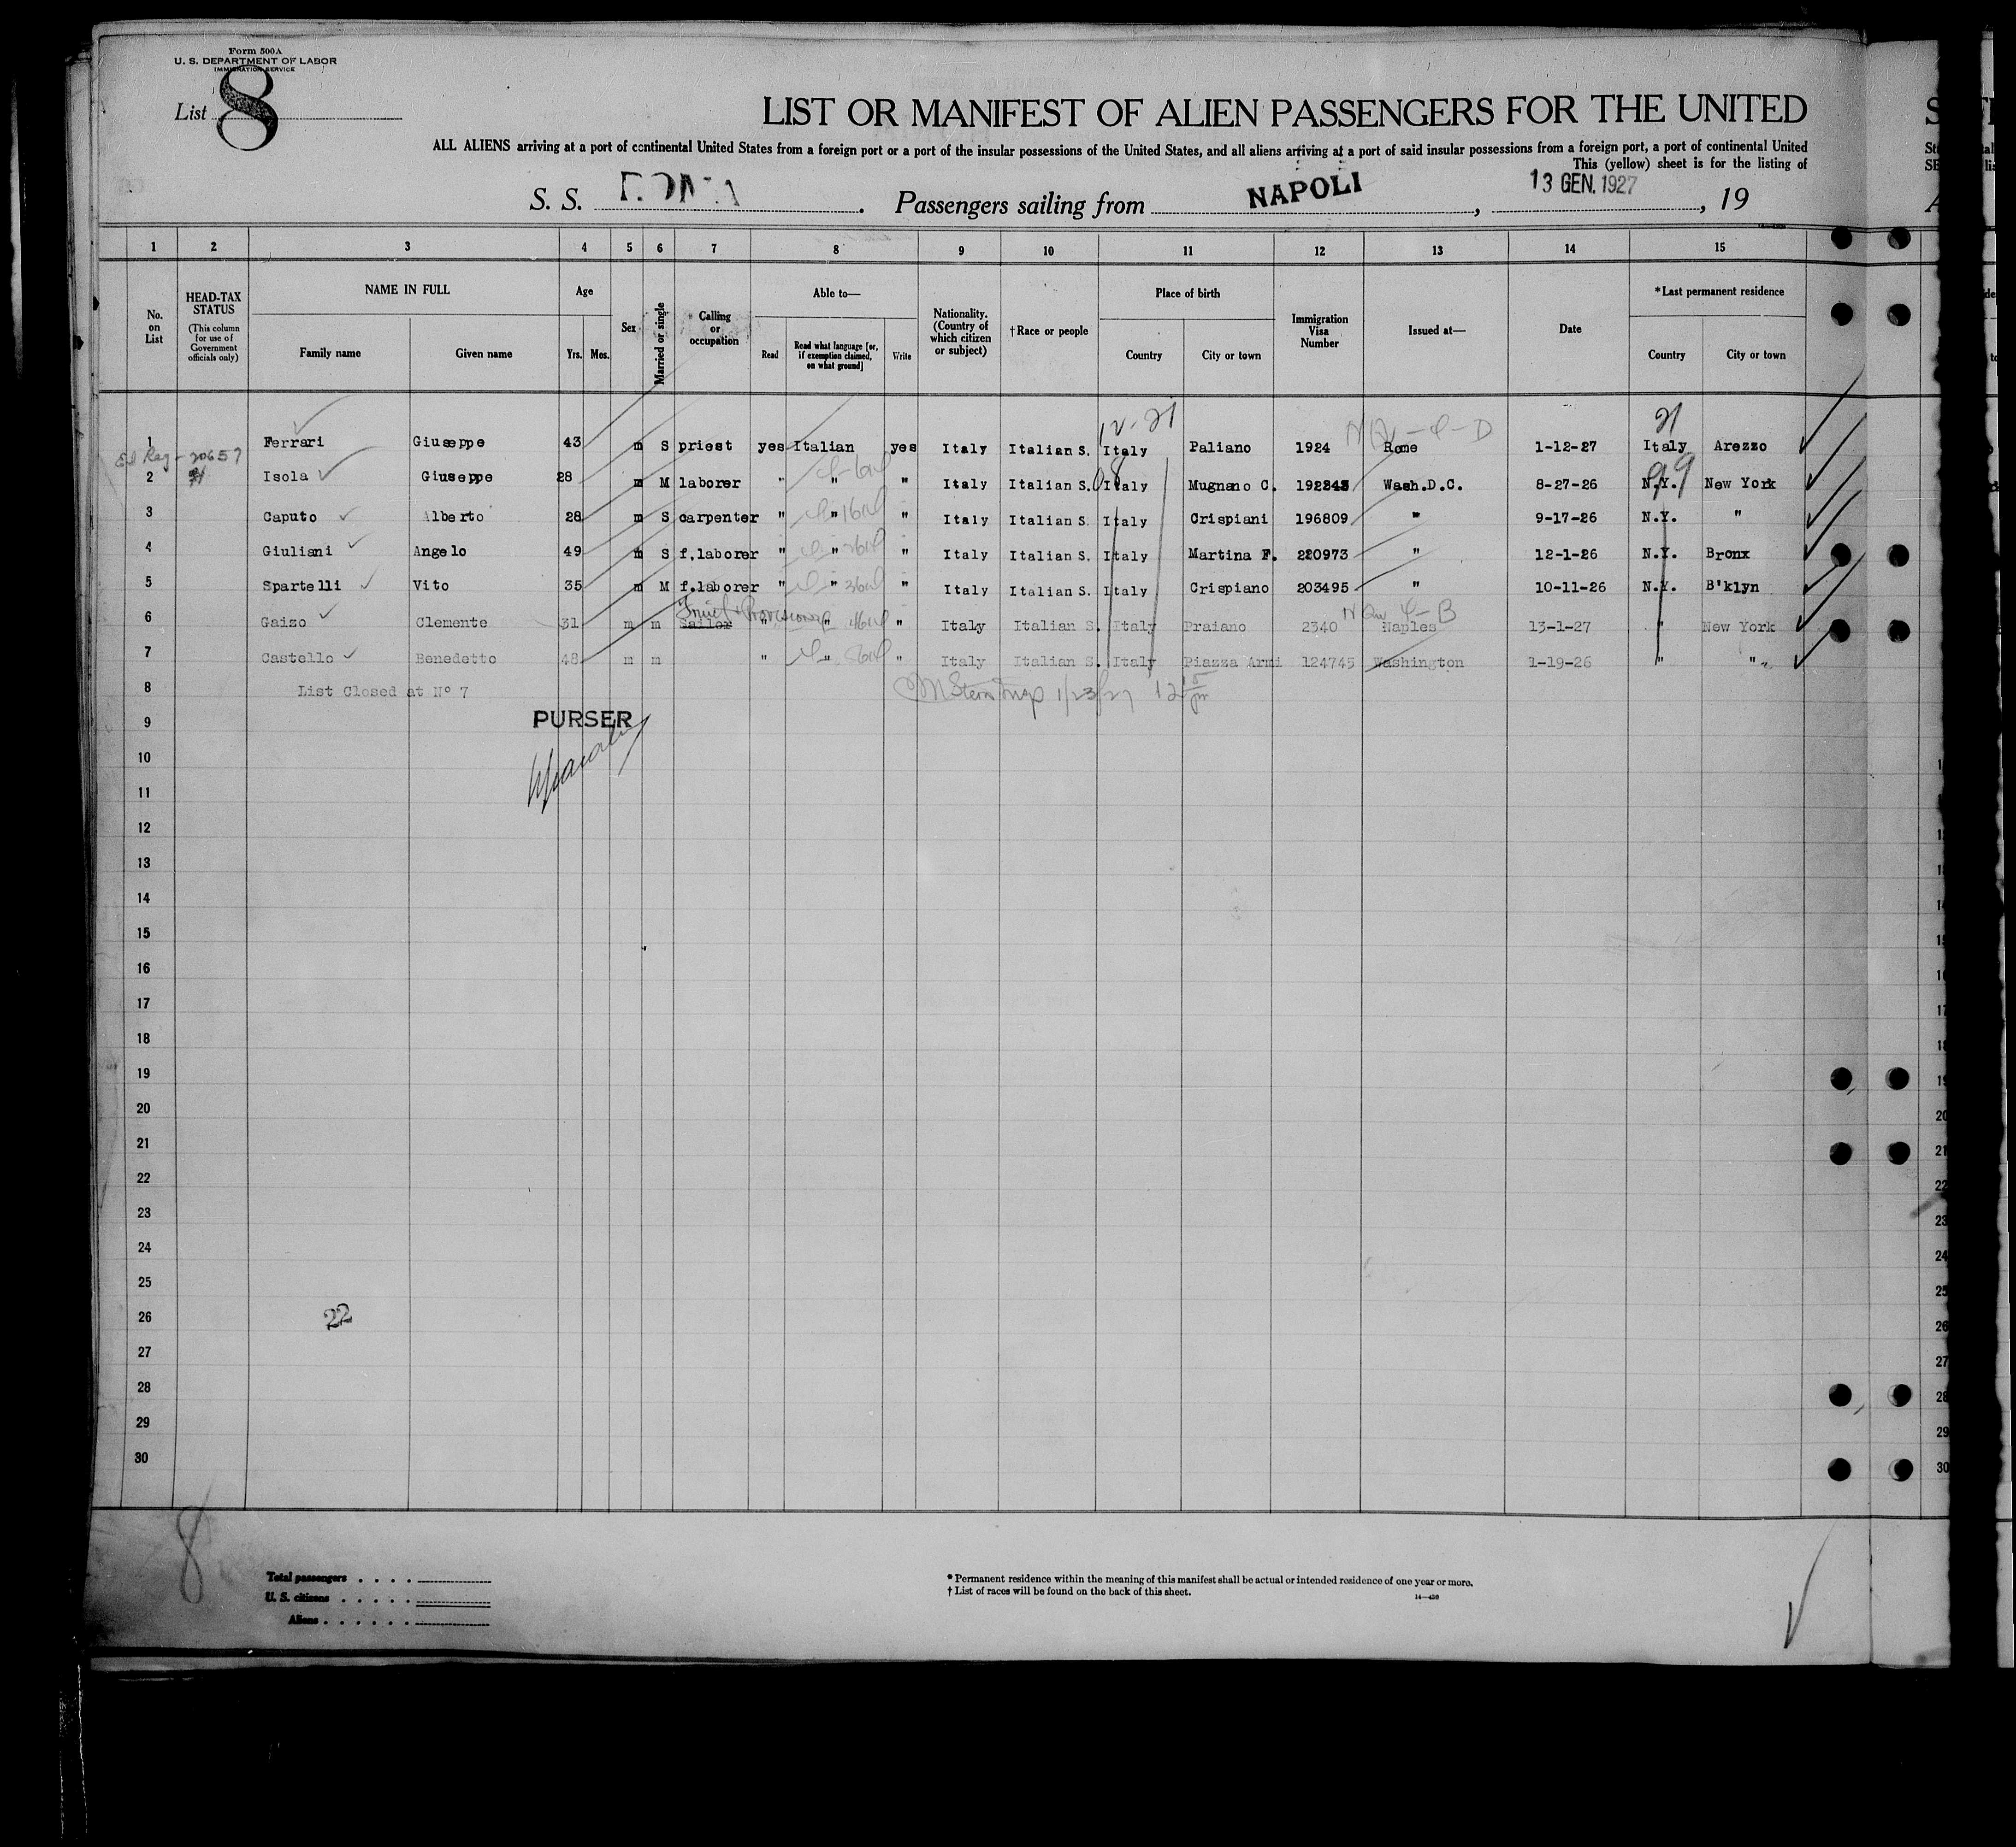 Form 500A
U. S. DEPARTMENT OF LABOR
IMMIGRATION SERVICE
List 8
LIST OR MANIFEST OF ALIEN PASSENGERS FOR THE UNITED
ALL ALIENS arriving at a port of continental United States from a foreign port or a port of the insular possessions of the United States, and all aliens arriving at a port of said insular possessions from a foreign port, a port of continental United
This (yellow) sheet is for the listing of
S. S. Passengers sailing from NAPOLI, 13 GEN. 1927, 19
1 2 3 4 5 6 7 8 9 10 11 12 13 14 15
No. on List
HEAD-TAX STATUS (This column for use of Government officials only)
NAME IN FULL
Family name Given name
Age
Yrs. Mos.
Sex
Married or single
Calling or occupation
Able to—
Read
Read what language [or, if exemption claimed, on what ground]
Write
Nationality. (Country of which citizen or subject)
†Race or people
Place of birth
Country City or town
Immigration Visa Number
Issued at—
Date
*Last permanent residence
Country City or town
12-21 21
1 Ferrari Giuseppe 43 m S priest yes Italian yes Italy Italian S. Italy Paliano 1924 Rome 1-12-27 Italy Arezzo
2 Isola Giuseppe 28 m M laborer " " " Italy Italian S. Italy Mugnano C. 192343 Wash.D.C. 8-27-26 N.Y. New York
99
3 Caputo Alberto 28 m S carpenter " " " Italy Italian S. Italy Crispiani 196809 " 9-17-26 N.Y. "
4 Giuliani Angelo 49 m S f.laborer " " " Italy Italian S. Italy Martina F. 220973 " 12-1-26 N.Y. Bronx
5 Spartelli Vito 35 m M f.laborer " " " Italy Italian S. Italy Crispiano 203495 " 10-11-26 N.Y. B'klyn
6 Gaizo Clemente 31 m m Sailor " " " Italy Italian S. Italy Praiano 2340 Naples 13-1-27 " New York
7 Castello Benedetto 48 m m " " " Italy Italian S. Italy Piazza Armi 124745 Washington 1-19-26 " "
8 List Closed at Nº 7
1/23/27
9 PURSER
10
11
12
13
14
15
16
17
18
19
20
21
22
23
24
25
26 22
27
28
29
30
8
Total passengers
U. S. citizens
Aliens
* Permanent residence within the meaning of this manifest shall be actual or intended residence of one year or more.
† List of races will be found on the back of this sheet.